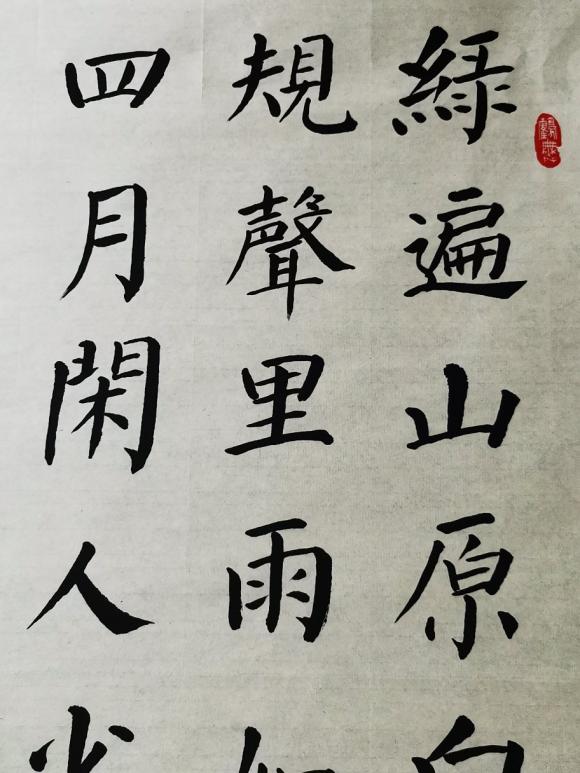 綠遍山原白
規聲里雨如
四月閑人少